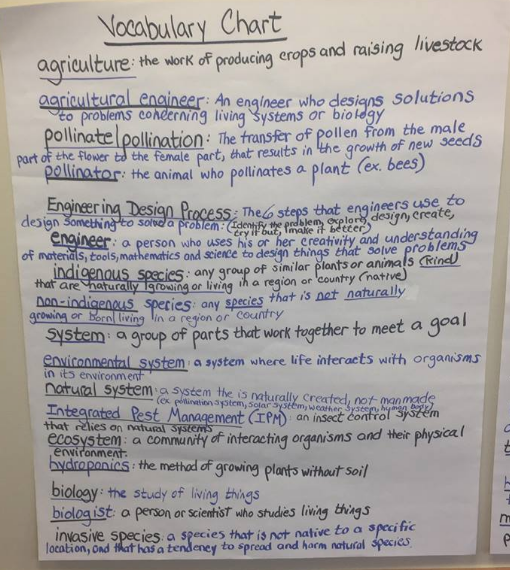 Vocabulary Chart
agriculture: the work of producing crops and raising livestock
agricultural engineer: An engineer who designs solutions
to problems concerning living systems or biology
pollinate/pollination: The transfer of pollen from the male
part of the flower to the female part, that results in the growth of new seeds
pollinator: the animal who pollinates a plant (ex. bees)
Engineering Design Process: The 6 steps that engineers use to
design something to solve a problem: (Identify the problem, explore, design, create,
try it out, make it better)
engineer: a person who uses his or her creativity and understanding
of materials, tools, mathematics and science to design things that solve problems
indigenous species: any group of similar plants or animals (kind)
that are naturally growing or living in a region or country (native)
non-indigenous species: any species that is not naturally
growing or born/living in a region or country
system: a group of parts that work together to meet a goal
environmental system: a system where life interacts with organisms
in its environment
natural system: a system the is naturally created, not manmade
(ex. pollination system, solar system, weather system, human body)
Integrated Pest Management (IPM): an insect control system
that relies on natural systems
ecosystem: a community of interacting organisms and their physical
environment.
hydroponics: the method of growing plants without soil
biology: the study of living things
biologist: a person or scientist who studies living things
invasive species: a species that is not native to a specific
location, and that has a tendency to spread and harm natural species.